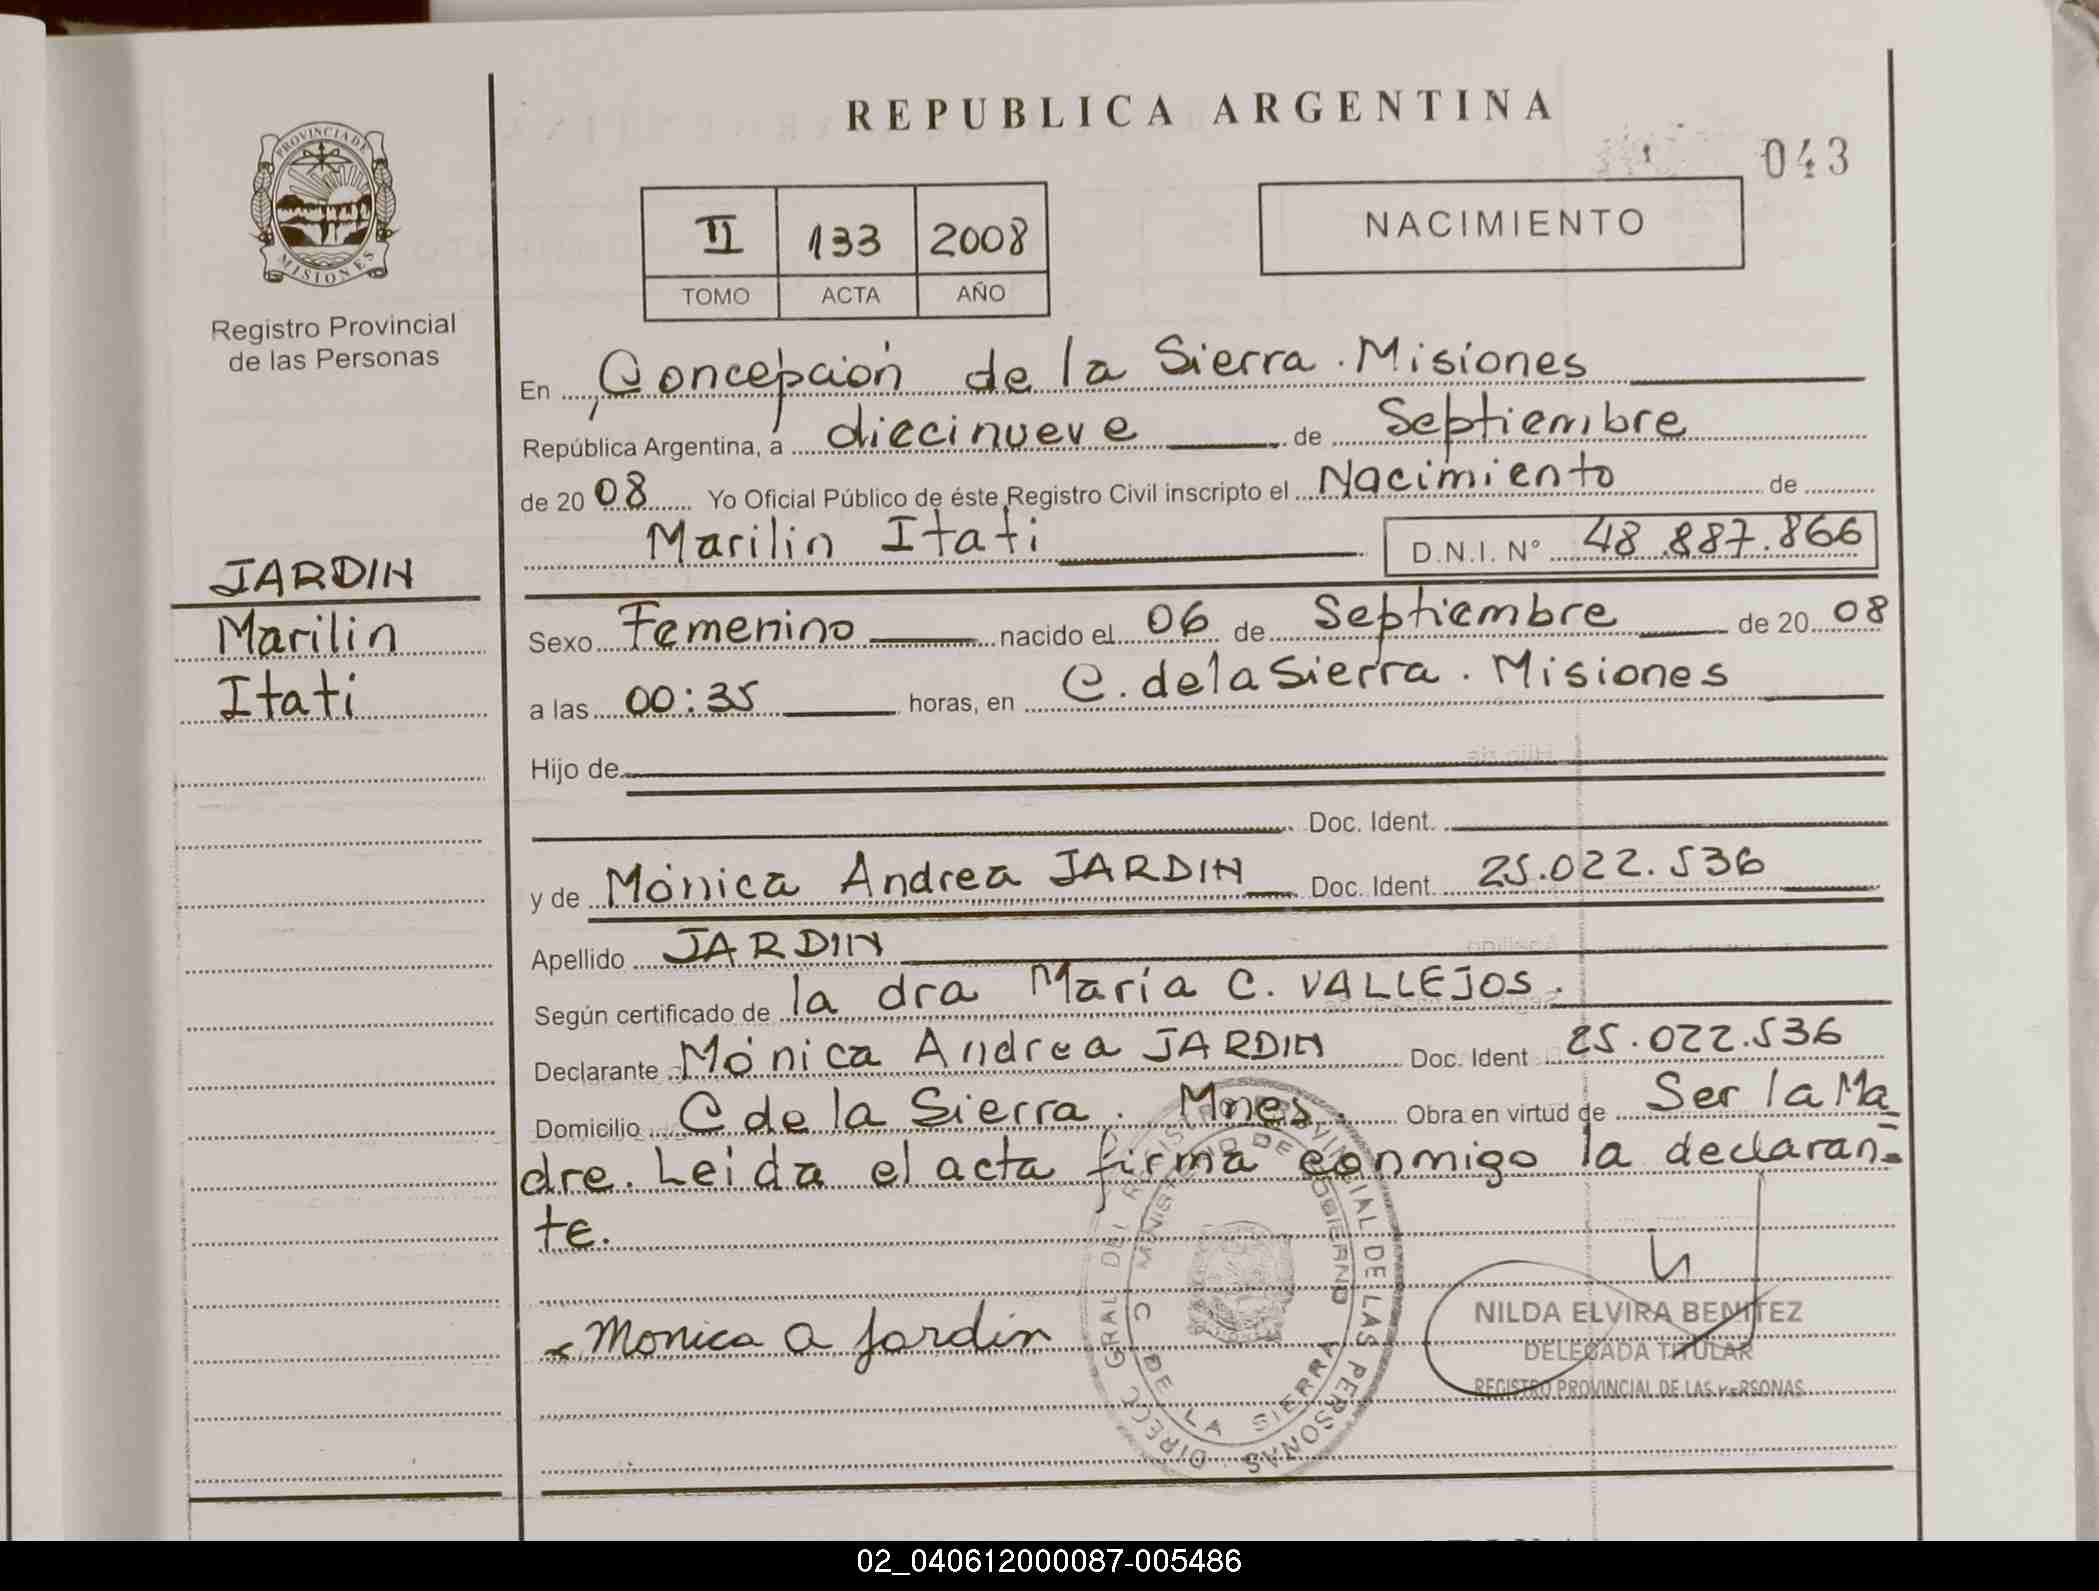 REPUBLICA ARGENTINA
043
PROVINCIA DE
MISIONES
Registro Provincial
de las Personas
II 133 2008
TOMO ACTA AÑO
NACIMIENTO
En Concepción de la Sierra . Misiones
República Argentina, a diecinueve de Septiembre
de 2008 Yo Oficial Público de éste Registro Civil inscripto el Nacimiento de
Marilin Itati D.N.I. N° 48.887.866
JARDIN
Marilin
Itati
Sexo Femenino nacido el 06 de Septiembre de 2008
a las 00:35 horas, en C. de la Sierra . Misiones
Hijo de
Doc. Ident.
y de Mónica Andrea JARDIN Doc. Ident. 25.022.536
Apellido JARDIN
Según certificado de la dra María C. VALLEJOS.
Declarante Mónica Andrea JARDIN Doc. Ident 25.022.536
Domicilio C de la Sierra . Mnes. Obra en virtud de Ser la Ma
dre. Leida el acta firma conmigo la declaran-
te.
Monica a Jardin
DIRECC GRAL DEL REGISTRO PROVINCIAL DE LAS PERSONAS
MINISTERIO DE GOBIERNO
C DE LA SIERRA
NILDA ELVIRA BENITEZ
DELEGADA TITULAR
REGISTRO PROVINCIAL DE LAS PERSONAS
02_040612000087-005486